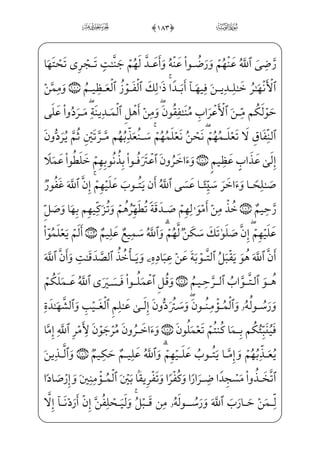 ﴿١٨٣﴾
رَّضِيَ ٱللَّهُ عَنْهُمْ وَرَضُوا۟ عَنْهُ وَأَعَدَّ لَهُمْ جَنَّٰتٍ تَجْرِى تَحْتَهَا
ٱلْأَنْهَٰرُ خَٰلِدِينَ فِيهَآ أَبَدًا ۚ ذَٰلِكَ ٱلْفَوْزُ ٱلْعَظِيمُ ﴿١٠٠﴾ وَمِمَّنْ
حَوْلَكُم مِّنَ ٱلْأَعْرَابِ مُنَٰفِقُونَ ۖ وَمِنْ أَهْلِ ٱلْمَدِينَةِ ۖ مَرَدُوا۟ عَلَى
ٱلنِّفَاقِ لَا تَعْلَمُهُمْ ۖ نَحْنُ نَعْلَمُهُمْ ۚ سَنُعَذِّبُهُم مَّرَّتَيْنِ ثُمَّ يُرَدُّونَ
إِلَىٰ عَذَابٍ عَظِيمٍ ﴿١٠١﴾ وَءَاخَرُونَ ٱعْتَرَفُوا۟ بِذُنُوبِهِمْ خَلَطُوا۟ عَمَلًا
صَٰلِحًا وَءَاخَرَ سَيِّئًا عَسَى ٱللَّهُ أَن يَتُوبَ عَلَيْهِمْ ۚ إِنَّ ٱللَّهَ غَفُورٌ
رَّحِيمٌ ﴿١٠٢﴾ خُذْ مِنْ أَمْوَٰلِهِمْ صَدَقَةً تُطَهِّرُهُمْ وَتُزَكِّيهِم بِهَا وَصَلِّ
عَلَيْهِمْ ۖ إِنَّ صَلَوٰتَكَ سَكَنٌ لَّهُمْ ۗ وَٱللَّهُ سَمِيعٌ عَلِيمٌ ﴿١٠٣﴾ أَلَمْ يَعْلَمُوٓا۟
أَنَّ ٱللَّهَ هُوَ يَقْبَلُ ٱلتَّوْبَةَ عَنْ عِبَادِهِۦ وَيَأْخُذُ ٱلصَّدَقَٰتِ وَأَنَّ ٱللَّهَ
هُوَ ٱلتَّوَّابُ ٱلرَّحِيمُ ﴿١٠٤﴾ وَقُلِ ٱعْمَلُوا۟ فَسَيَرَى ٱللَّهُ عَمَلَكُمْ
وَرَسُولُهُۥ وَٱلْمُؤْمِنُونَ ۖ وَسَتُرَدُّونَ إِلَىٰ عَٰلِمِ ٱلْغَيْبِ وَٱلشَّهَٰدَةِ
فَيُنَبِّئُكُم بِمَا كُنتُمْ تَعْمَلُونَ ﴿١٠٥﴾ وَءَاخَرُونَ مُرْجَوْنَ لِأَمْرِ ٱللَّهِ إِمَّا
يُعَذِّبُهُمْ وَإِمَّا يَتُوبُ عَلَيْهِمْ ۗ وَٱللَّهُ عَلِيمٌ حَكِيمٌ ﴿١٠٦﴾ وَٱلَّذِينَ
ٱتَّخَذُوا۟ مَسْجِدًا ضِرَارًا وَكُفْرًا وَتَفْرِيقًۢا بَيْنَ ٱلْمُؤْمِنِينَ وَإِرْصَادًا
لِّمَنْ حَارَبَ ٱللَّهَ وَرَسُولَهُۥ مِن قَبْلُ ۚ وَلَيَحْلِفُنَّ إِنْ أَرَدْنَآ إِلَّا